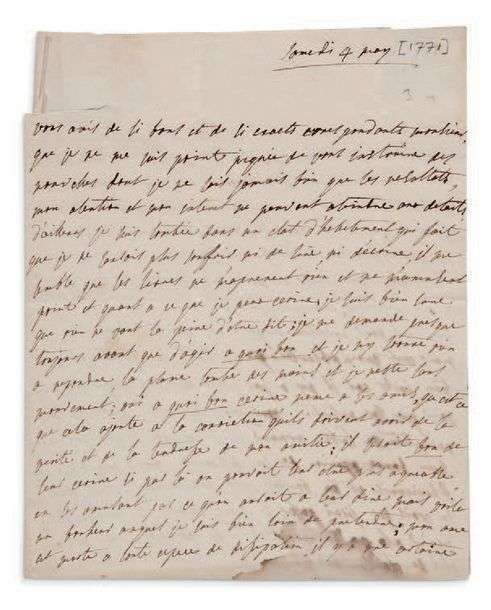 samedi 4 may [1771]
vous avés de si bons et de si exacts correspondants monsieur
que je ne me suis point piquée de vous instruire des
nouvelles dont je ne sais jamais bien que les resultats,
mon atention et mon talent ne peuvent ateindre aux details
d'ailleurs je suis tombée dans un etat d'hebetement qui fait
que je ne saurois plus souffrir ni de lire ni d'ecrire, il me
semble que les livres ne m'aprennent rien et ne m'amusent
point et quant a ce que je peux ecrire, je suis bien sure
que rien ne vaut la peine d'etre dit; je me demande presque
toujours avant que d'agir a quoi bon et je n'y trouve rien
a repondre la plume tombe des mains et je reste sans
mouvement; oui a quoi bon ecrire meme a ses amis, qu'est ce
que cela ajoute a la conviction qu'ils doivent avoir de la
verité et de la tendresse de mon amitié; il seroit bon de
leur ecrire si par la on pouvoit leur etre agreable
en les amusant par ce qu'on auroit a leur dire mais voila
un bonheur auquel je suis bien loin de pretendre; mon ame
est morte a toute especes de dissipation il y a une certaine